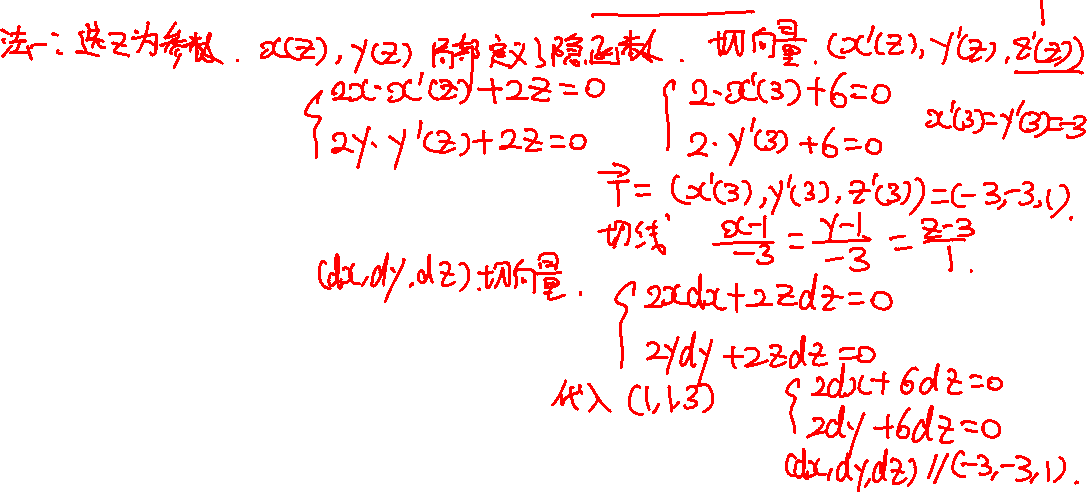 法一：选z为参数. x(z), y(z) 局部定义了隐函数. 切向量. (x'(z), y'(z), z'(z))
{ 2x·x'(z)+2z=0 { 2·x'(3)+6=0 x'(3)=y'(3)=-3
2y·y'(z)+2z=0 2·y'(3)+6=0
T⃗=(x'(3), y'(3), z'(3))=(-3,-3,1).
切线 (x-1)/-3 = (y-1)/-3 = (z-3)/1.
(dx,dy,dz)切向量. { 2xdx+2zdz=0
2ydy+2zdz=0
代入 (1,1,3) { 2dx+6dz=0
2dy+6dz=0
(dx,dy,dz)//(-3,-3,1).